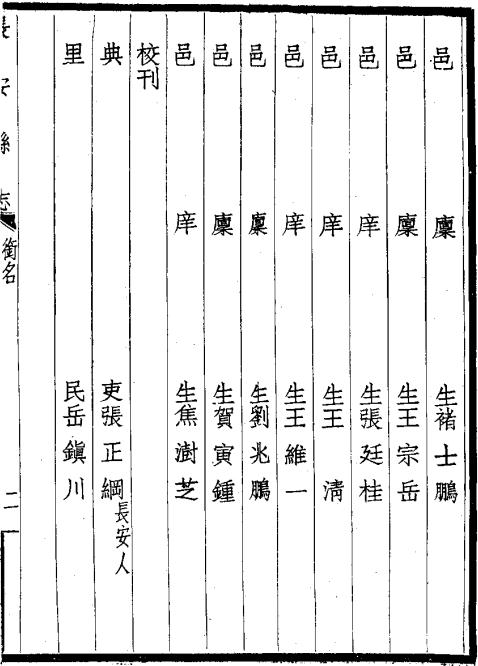 邑廩生褚士鵬
邑廩生王宗岳
邑庠生張廷桂
邑庠生王清
邑庠生王維一
邑廩生劉兆鵬
邑廩生賀寅鍾
邑庠生焦澍芝
校刊
典吏張正綱長安人
里民岳鎭川
長安縣志
銜名
二